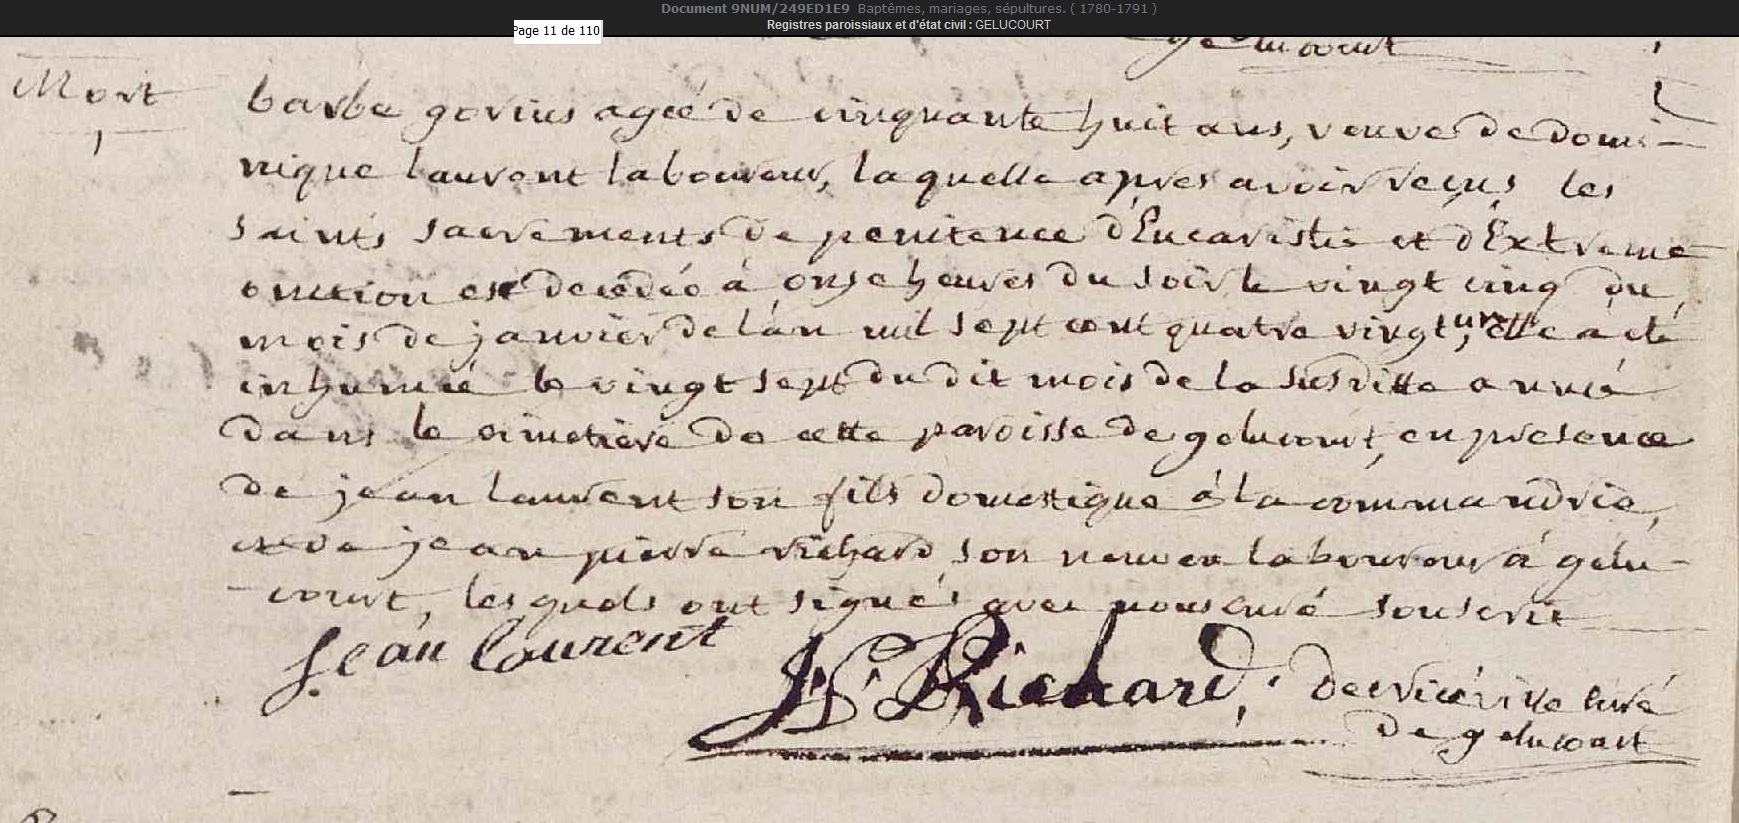 Document 9NUM/249ED1E9 Baptêmes, mariages, sépultures. ( 1780-1791 )
Registres paroissiaux et d'état civil : GELUCOURT
Page 11 de 110
gelucourt
Mort
barbe govius ageé de cinquante huit ans, veuve de domi-
nique laurent laboureur, la quelle apres avoir reçus les
saints sacrements de penitence d'Eucaristie et d'Extreme
onction est decedée à onse heures du soir le vingt cinq du
mois de janvier de l'an mil sept cent quatre vingt un, elle a eté
inhumeé le vingt sept du dit mois de la susditte anneé
dans le cimetiere de cette paroisse de gelucourt, en presence
de jean laurent son fils domestique à la commandrie,
et de jean pierre richard son neveu laboureur à gelu-
-court, les quels ont signés avec nous curé souscrit
Jean laurent
JP Richard
curé
de gelucourt